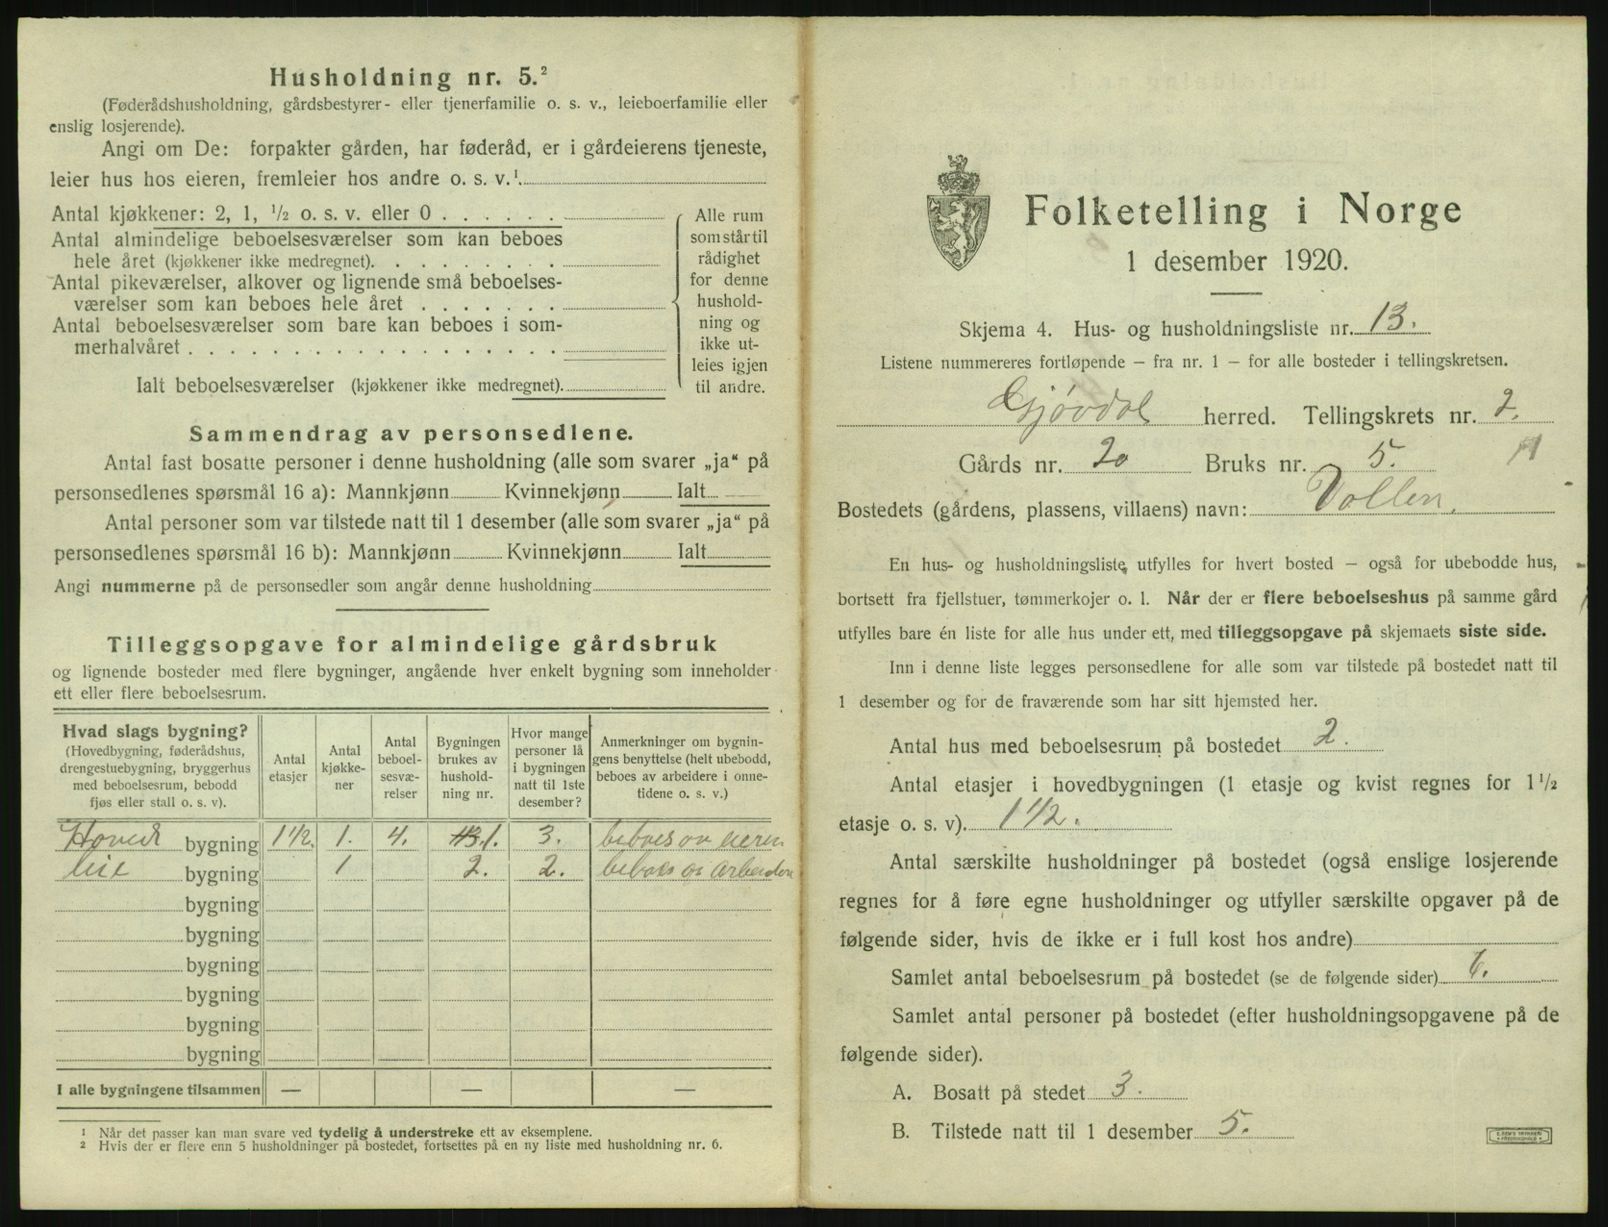 Husholdning nr. 5.²
(Føderådshusholdning, gårdsbestyrer- eller tjenerfamilie o. s. v., leieboerfamilie eller
enslig losjerende).
Angi om De: forpakter gården, har føderåd, er i gårdeierens tjeneste,
leier hus hos eieren, fremleier hos andre o. s. v.¹
Antal kjøkkener: 2, 1, ½ o. s. v. eller 0
Antal almindelige beboelsesværelser som kan beboes
hele året (kjøkkener ikke medregnet).
Antal pikeværelser, alkover og lignende små beboelses-
værelser som kan beboes hele året
Antal beboelsesværelser som bare kan beboes i som-
merhalvåret
Ialt beboelsesværelser (kjøkkener ikke medregnet).
Alle rum
som står til
rådighet
for denne
hushold-
ning og
ikke ut-
leies igjen
til andre.
Sammendrag av personsedlene.
Antal fast bosatte personer i denne husholdning (alle som svarer „ja“ på
personsedlenes spørsmål 16 a): Mannkjønn Kvinnekjønn Ialt
Antal personer som var tilstede natt til 1 desember (alle som svarer „ja“ på
personsedlenes spørsmål 16 b): Mannkjønn Kvinnekjønn Ialt
Angi nummerne på de personsedler som angår denne husholdning
Tilleggsopgave for almindelige gårdsbruk
og lignende bosteder med flere bygninger, angående hver enkelt bygning som inneholder
ett eller flere beboelsesrum.
Hvad slags bygning?
(Hovedbygning, føderådshus,
drengestuebygning, bryggerhus
med beboelsesrum, bebodd
fjøs eller stall o. s. v).
Antal
etasjer
Antal
kjøkke-
ner
Antal
beboel-
sesvæ-
relser
Bygningen
brukes av
hushold-
ning nr.
Hvor mange
personer lå
i bygningen
natt til 1ste
desember?
Anmerkninger om bygnin-
gens benyttelse (helt ubebodd,
beboes av arbeidere i onne-
tidene o. s. v.)
Hoved bygning 1 1/2. 1. 4. 1. 3. beboes av eieren
leie bygning 1 2. 2. beboes av Arbeidere
bygning
bygning
bygning
bygning
bygning
bygning
I alle bygningene tilsammen — — —
¹ Når det passer kan man svare ved tydelig å understreke ett av eksemplene.
² Hvis der er flere enn 5 husholdninger på bostedet, fortsettes på en ny liste med husholdning nr. 6.
Folketelling i Norge
1 desember 1920.
Skjema 4. Hus- og husholdningsliste nr. 13.
Listene nummereres fortløpende — fra nr. 1 — for alle bosteder i tellingskretsen.
Gjøvdal herred. Tellingskrets nr. 2.
Gårds nr. 20 Bruks nr. 5.
Bostedets (gårdens, plassens, villaens) navn: Vollen.
En hus- og husholdningsliste utfylles for hvert bosted — også for ubebodde hus,
bortsett fra fjellstuer, tømmerkojer o. l. Når der er flere beboelseshus på samme gård
utfylles bare én liste for alle hus under ett, med tilleggsopgave på skjemaets siste side.
Inn i denne liste legges personsedlene for alle som var tilstede på bostedet natt til
1 desember og for de fraværende som har sitt hjemsted her.
Antal hus med beboelsesrum på bostedet 2.
Antal etasjer i hovedbygningen (1 etasje og kvist regnes for 1½
etasje o. s. v). 1 1/2.
Antal særskilte husholdninger på bostedet (også enslige losjerende
regnes for å føre egne husholdninger og utfyller særskilte opgaver på de
følgende sider, hvis de ikke er i full kost hos andre)
Samlet antal beboelsesrum på bostedet (se de følgende sider) 6.
Samlet antal personer på bostedet (efter husholdningsopgavene på de
følgende sider).
A. Bosatt på stedet 3.
B. Tilstede natt til 1 desember 5.